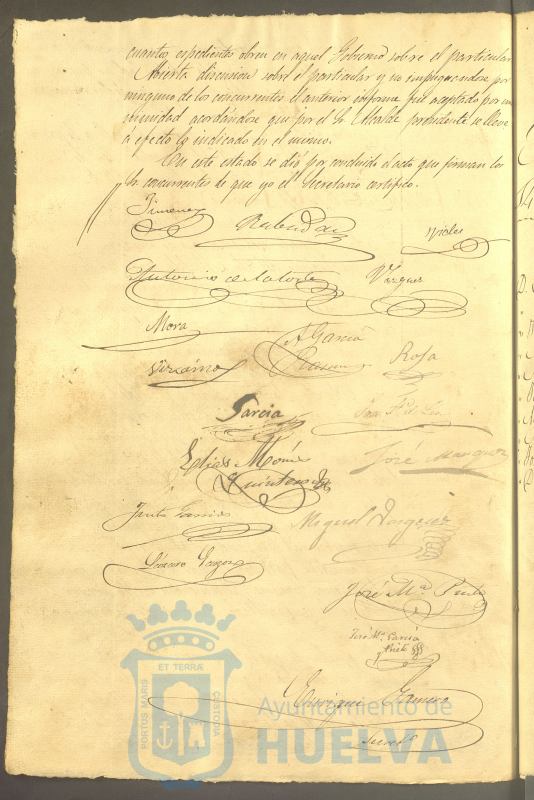 cuantos espedientes obren en aquel Gobierno sobre el particular
Abierta discusion sobre el particular y no impugnandose por
ninguno de los concurrentes el anterior informe fué aceptado por una
nimidad acordandose que por el Sr Alcalde presidente se lleve
á efecto lo indicado en el mismo.
En este estado se dió por concluido el acto que firman los
Sr concurrentes de que yo el Secretario certifico.
Jimenez
Viales
Antonio de la Corte Vazquez
Mora
A Garcia
Ramon
Rosa
Vizcaino
Garcia
Elias Moni
Quintero
José Marquez
Justo Garrido
Miguel Vazquez
Lázaro
José Ma. Prieto
José Ma. Garcia
y Prieto
Enrique
Secret
ET TERRÆ
PORTUS MARIS
CUSTODIA
Ayuntamiento de
HUELVA